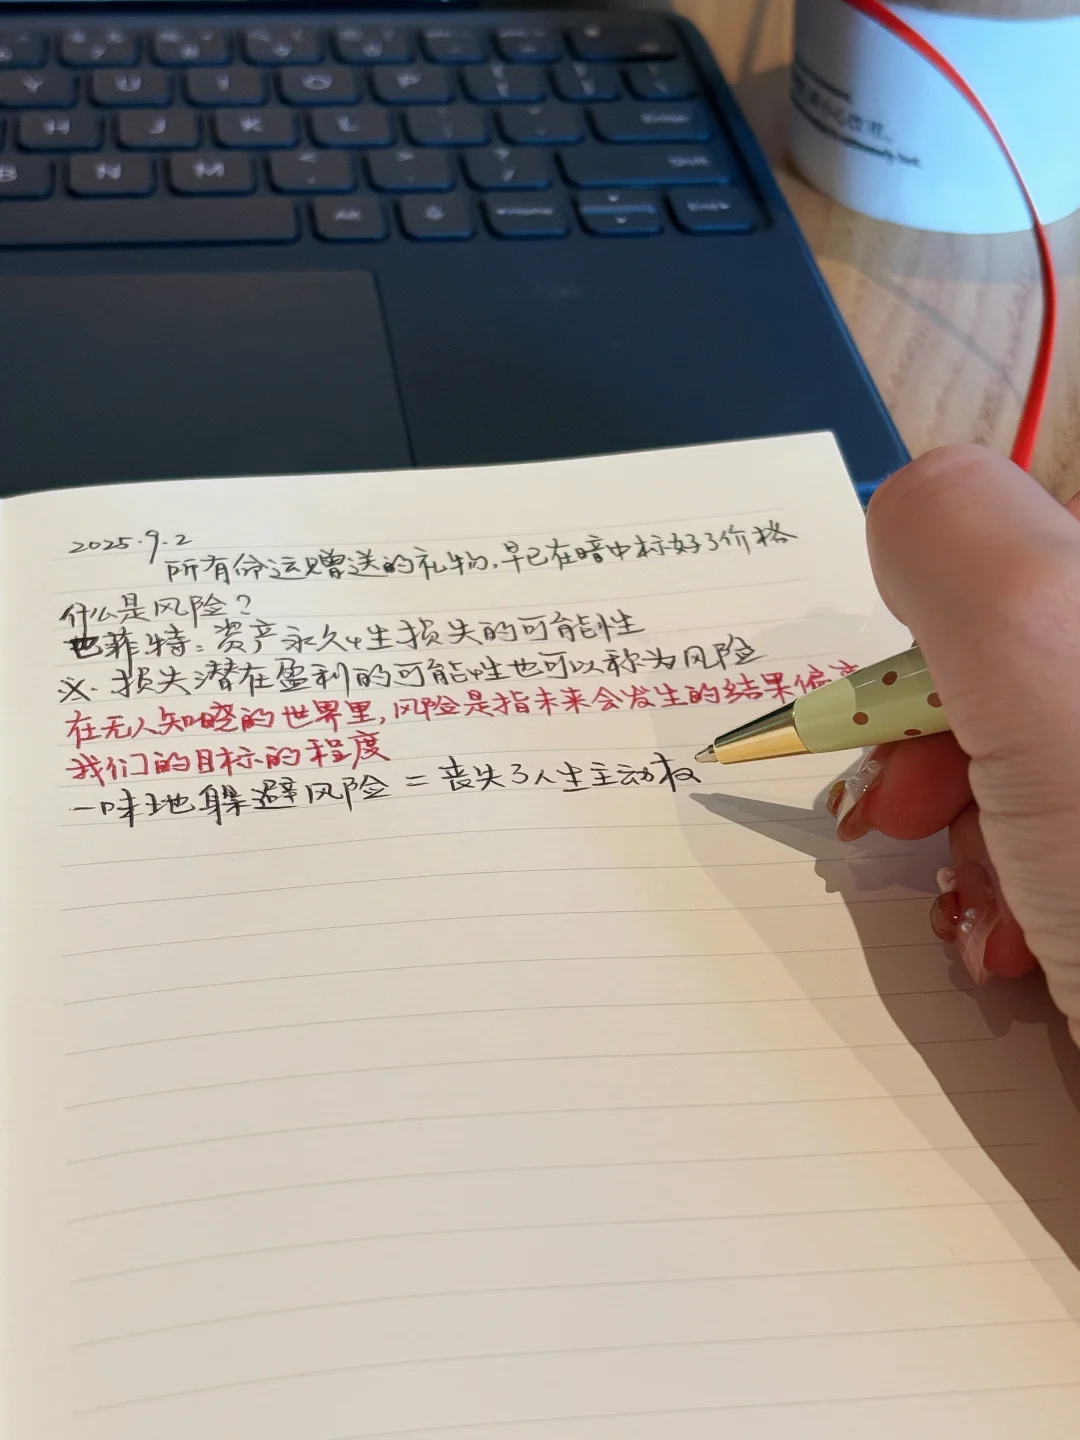 Y U I O P
H J K L Enter
B N M < > ? / Shift
Alt Home End
2025.9.2
所有命运赠送的礼物,早已在暗中标好了价格
什么是风险?
巴菲特:资产永久性损失的可能性
※. 损失潜在盈利的可能性也可以称为风险
在无人知晓的世界里,风险是指未来会发生的结果偏离
我们的目标的程度
一味地躲避风险 = 丧失了人生主动权